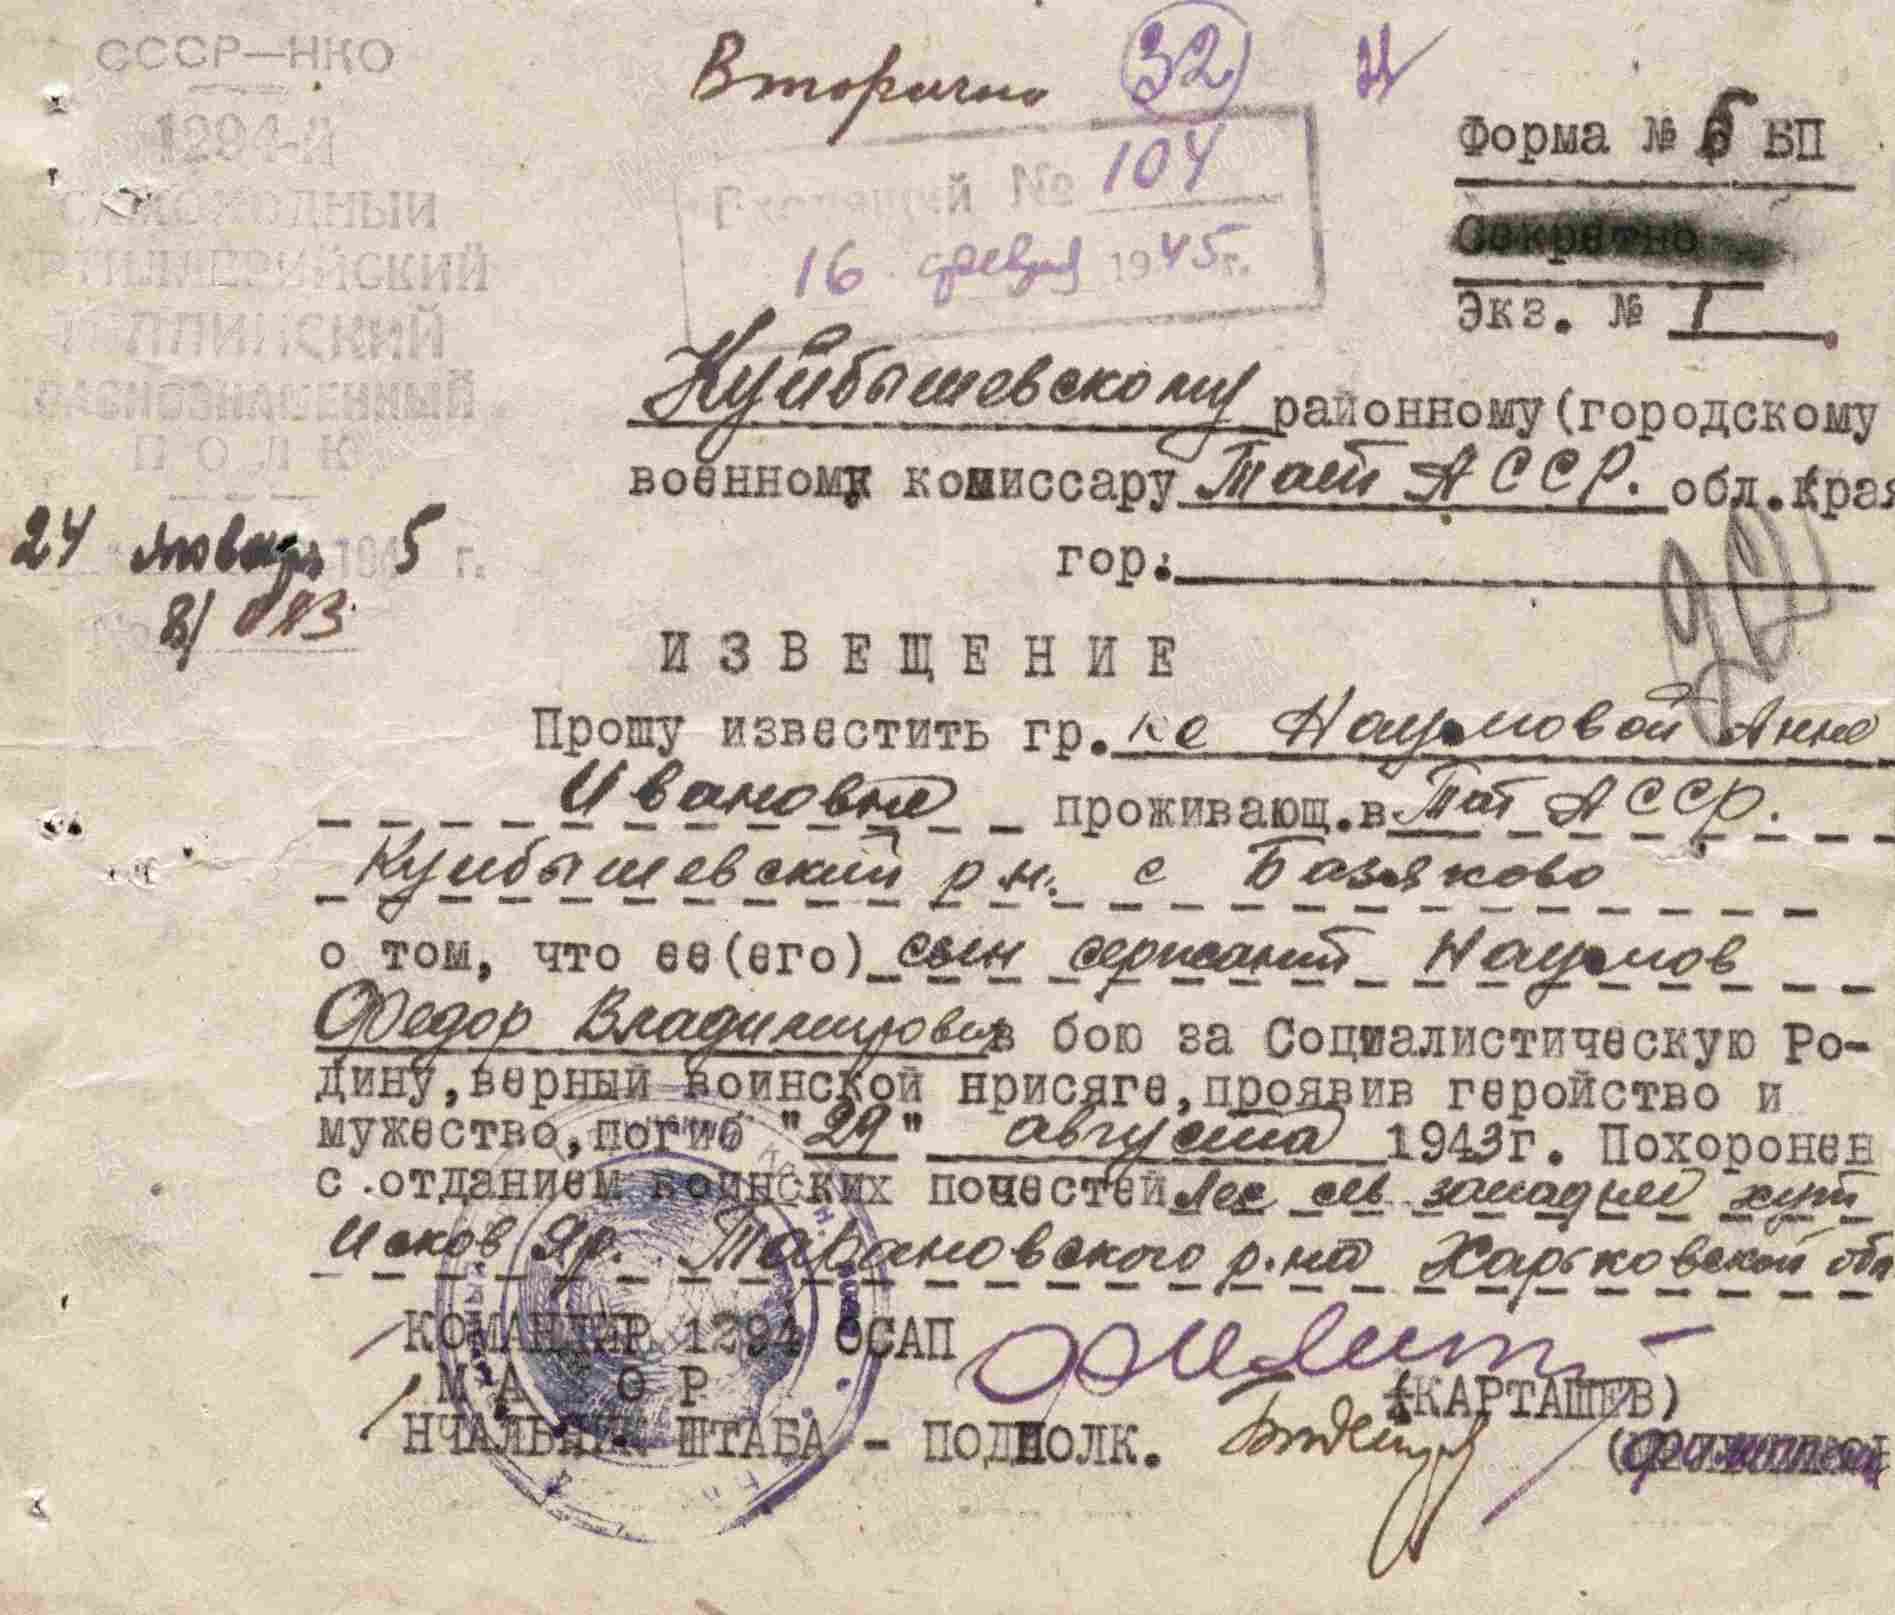 СССР—НКО
Вторично 32
1294-й
САМОХОДНЫЙ
АРТИЛЛЕРИЙСКИЙ
КРАСНОЗНАМЕННЫЙ
ПОЛК
24 января 1945 г.
Входящий № 104
16 февраля 1945 г.
Форма № БП
Секретно
Экз. № 1
Куйбышевскому районному(городскому
военному комиссару Тат АССР. обл.края
гор.
ИЗВЕЩЕНИЕ
Прошу известить гр.ке Наумовой Анне
Ивановне проживающ.в Тат АССР.
Куйбышевский р.н. с Базяково
о том, что ее(его) сын сержант Наумов
Федор Владимирович в бою за Социалистическую Ро-
дину,верный воинской нрисяге,проявив геройство и
мужество,погиб "29" августа 1943г. Похоронен
с отданием воинских почестей лес сев западней хут
Исков Яр. Тарановского р.на Харьковской обл
КОМАНДИР 1294 ОСАП
МА ОР (КАРТАШЕВ)
НЧАЛЬНИК ШТАБА - ПОДПОЛК.